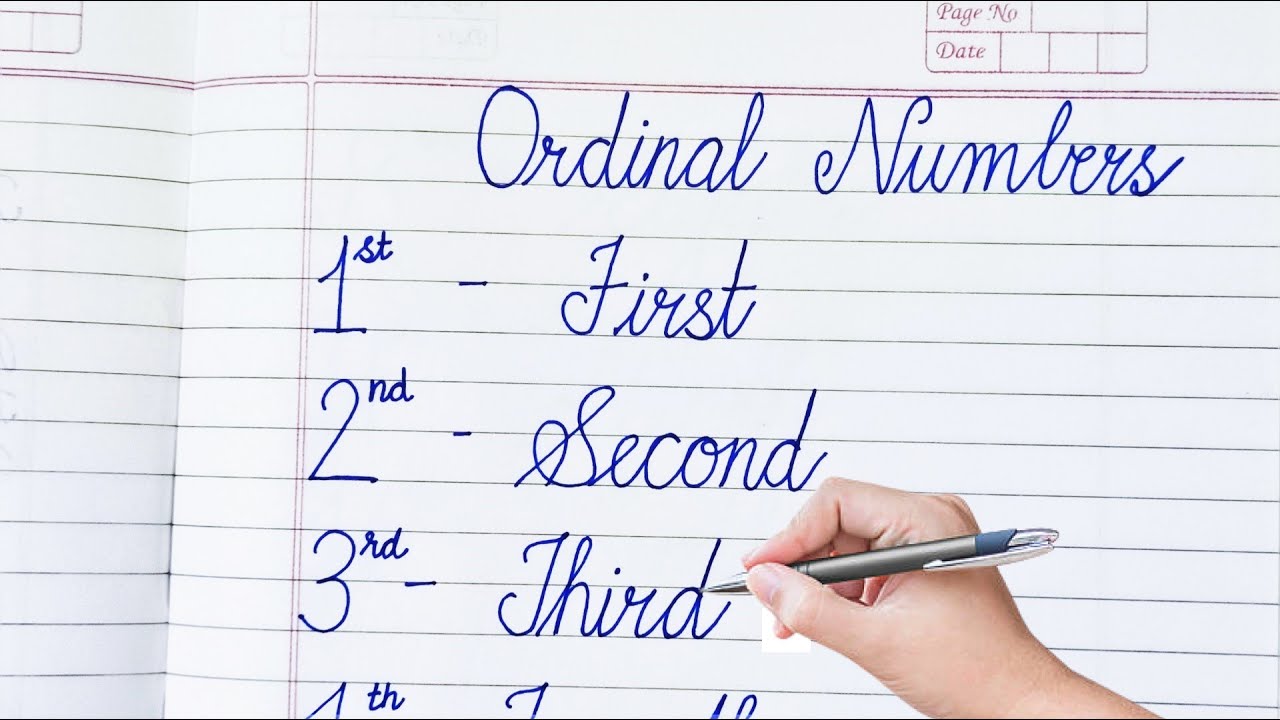 Page No
Date
Ordinal Numbers
1st - First
2nd - Second
3rd - Third